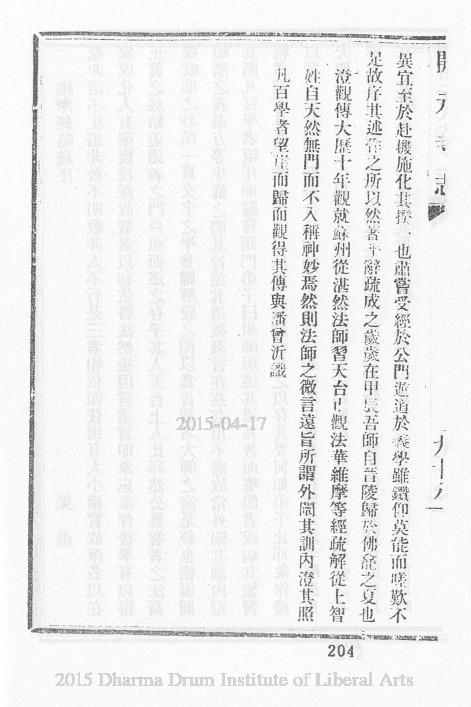 開元寺志
異宜至於赴機施化其揆一也肅嘗受經於公門遊道於義學雖鑽仰莫能而嗟歎不
足故序其述作之所以然著于辭疏成之歲歲在甲辰吾師自晉陵歸於佛龕之夏也
澄觀傳大歷十年觀就蘇州從湛然法師習天台止觀法華維摩等經疏解從上智
姓自天然無門而不入稱神妙焉然則法師之微言遠旨所謂外闡其訓內澄其照
凡百學者望崖而歸而觀得其傳與潘曾沂識
2015-04-17
204
2015 Dharma Drum Institute of Liberal Arts